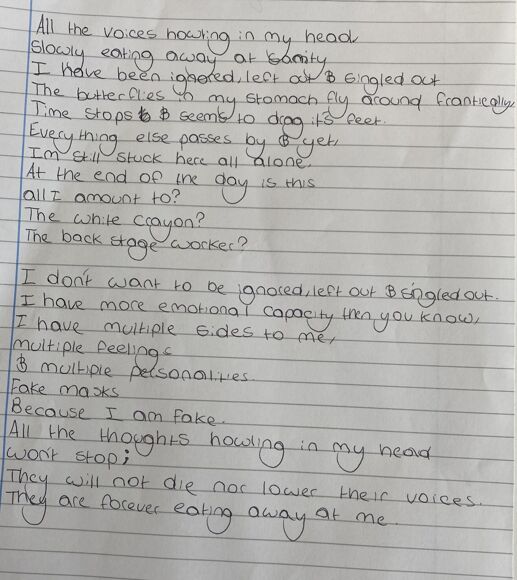 All the voices howling in my head
Slowly eating away at sanity
I have been ignored, left out & singled out
The butterflies in my stomach fly around frantically.
Time stops & seems to drag it's feet.
Everything else passes by & yet,
I'm still stuck here all alone.
At the end of the day is this
all I amount to?
The white crayon?
The back stage worker?
I don't want to be ignored, left out & singled out.
I have more emotional capacity then you know,
I have multiple sides to me,
multiple feelings
& multiple personalities.
Fake masks
Because I am fake.
All the thoughts howling in my head
won't stop;
They will not die nor lower their voices.
They are forever eating away at me.